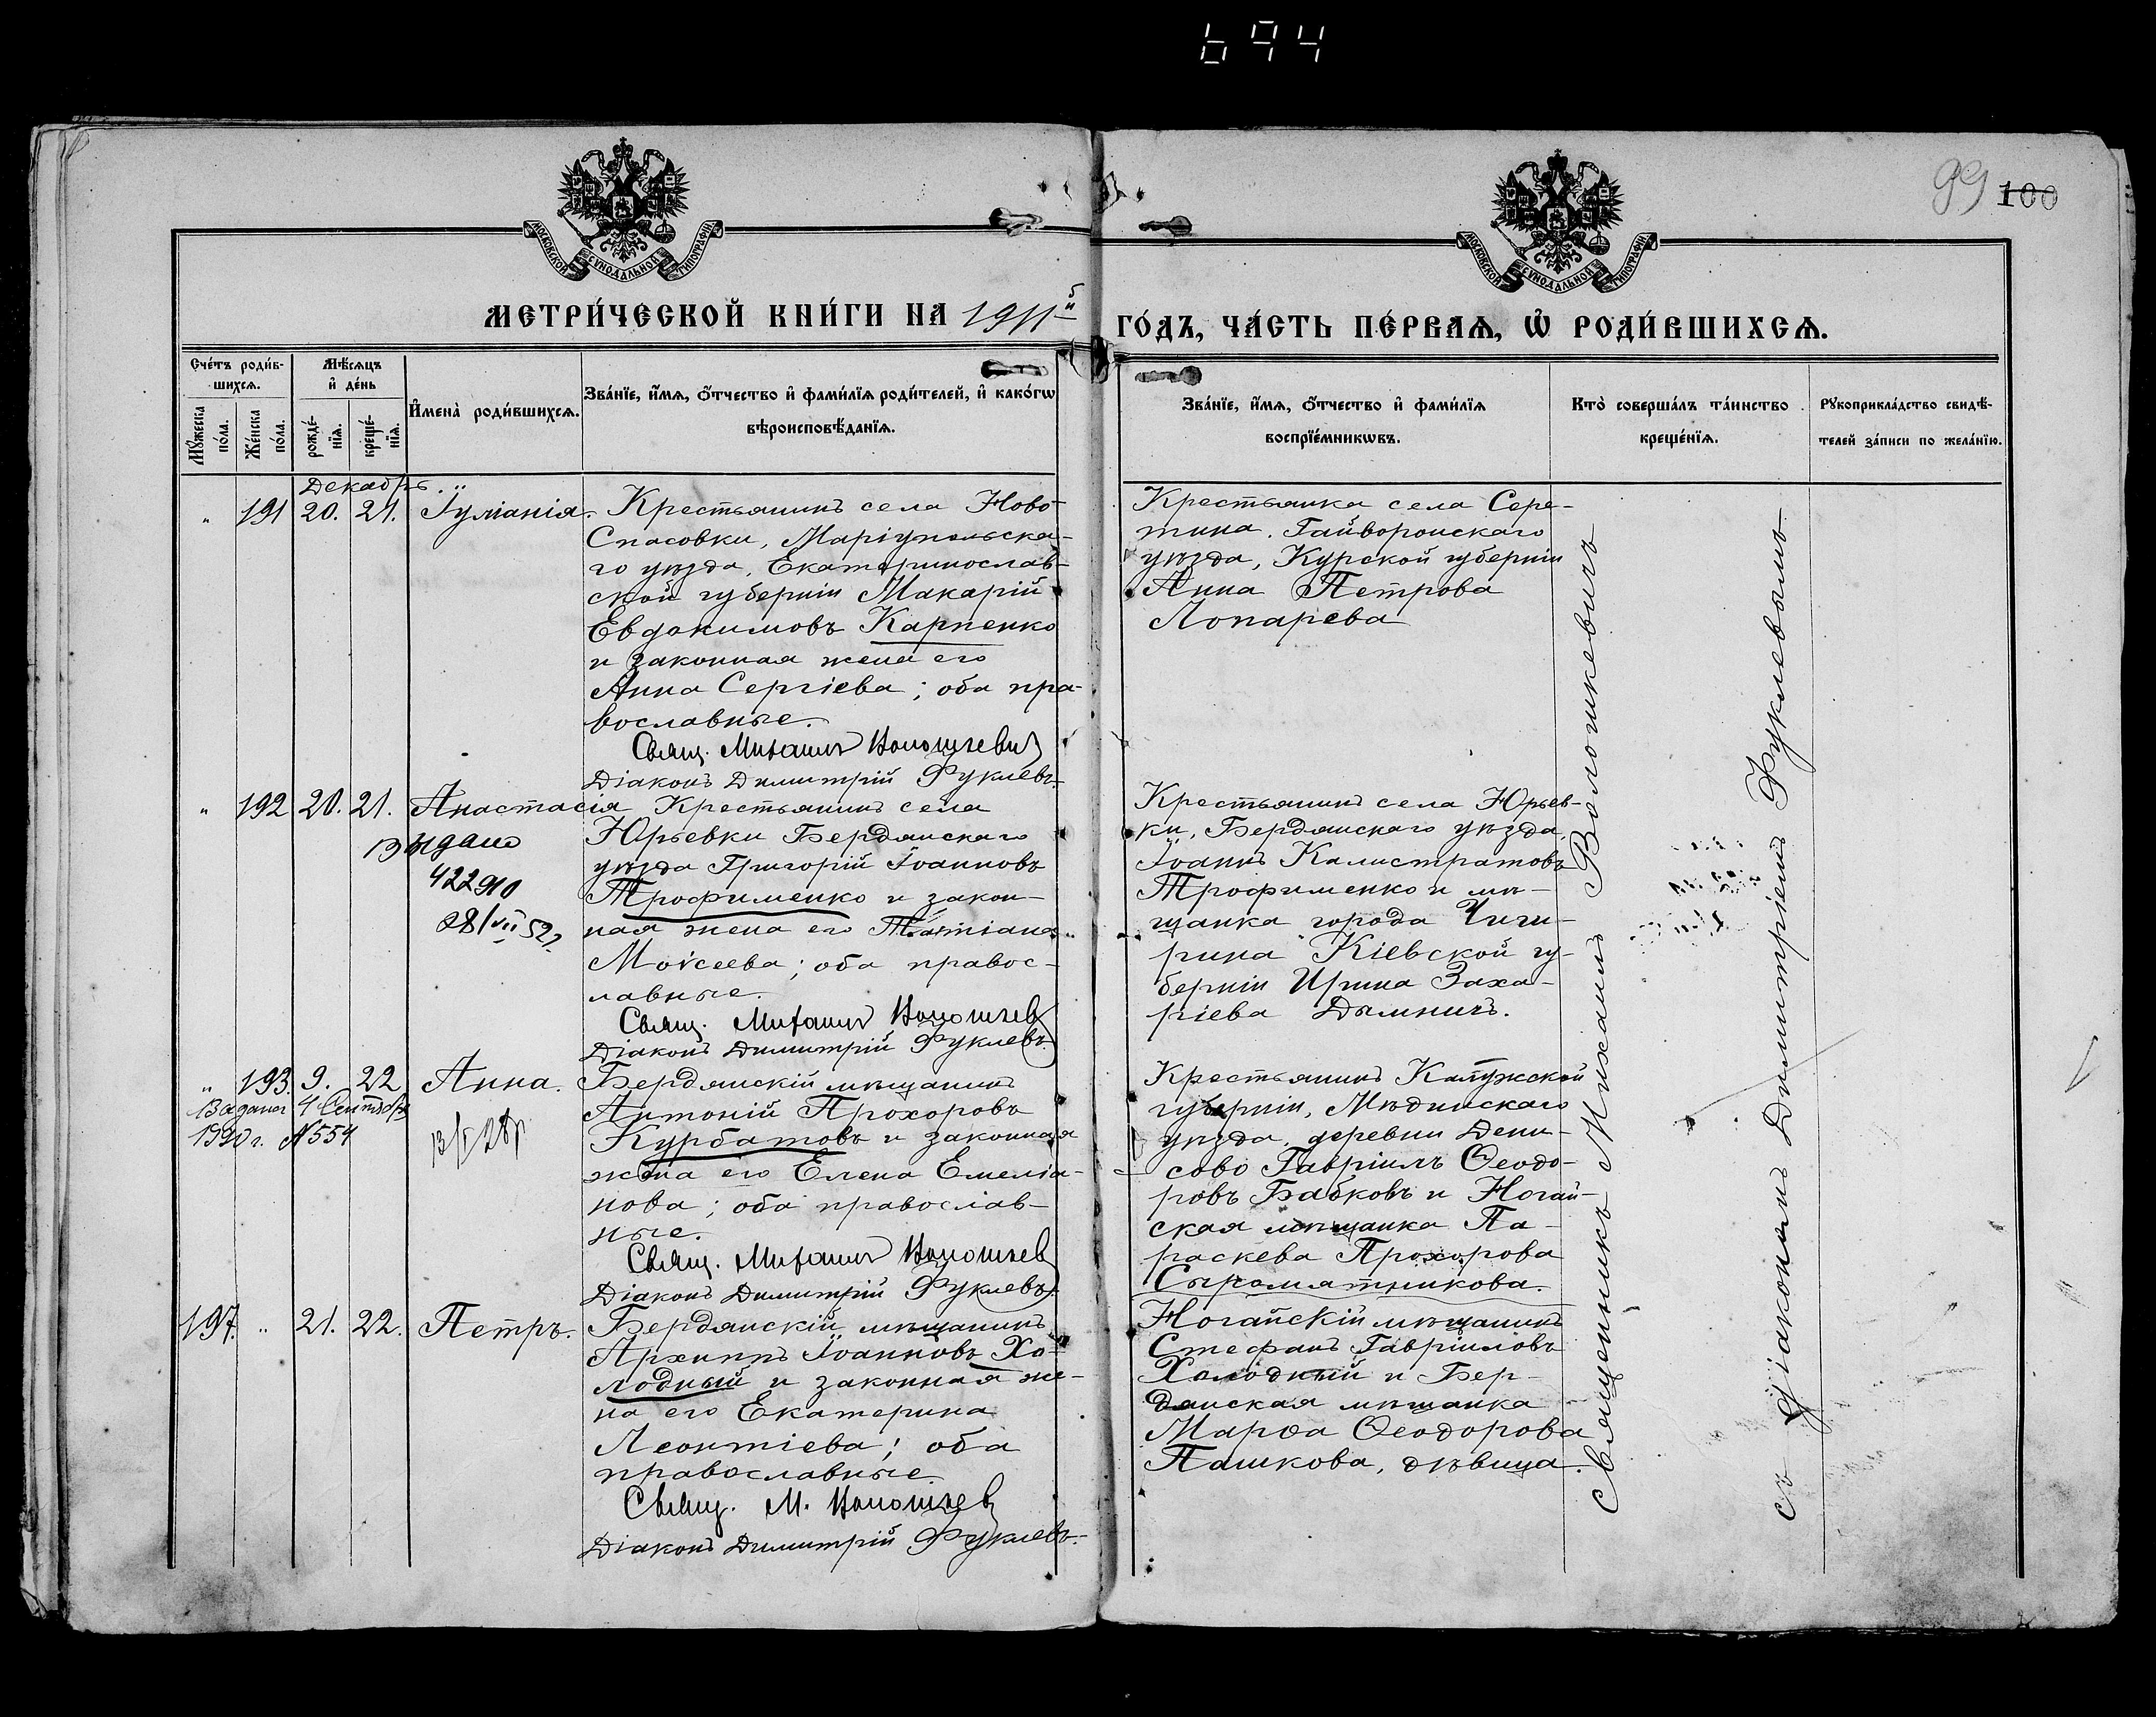 694
99 100
МОСКОВСКОЙ СѴНОДАЛЬНОЙ ТИПОГРАФІИ
МОСКОВСКОЙ СѴНОДАЛЬНОЙ ТИПОГРАФІИ
МЕТРИ́ЧЕСКОЙ КНИ́ГИ НА 1911й
ГО́ДЪ, ЧА́СТЬ ПЕ́РВАѦ, Ѡ҆ РОДИ́ВШИХСѦ.
Сче́тъ роди́в-
шихсѧ.
Мѣ́сѧцъ
и҆ де́нь
Мꙋ́жеска
по́ла.
Же́нска
по́ла.
рожде́-
нїѧ.
креще́-
нїѧ.
И҆мена̀ роди́вшихсѧ.
Зва́нїе, и҆́мѧ, ѻ҆́тчество и҆ фами́лїѧ роди́телей, и҆ како́гѡ
вѣроисповѣ́данїѧ.
Зва́нїе, и҆́мѧ, ѻ҆́тчество и҆ фами́лїѧ
воспрїе́мникѡвъ.
Кто̀ соверша́лъ та́инство
креще́нїѧ.
Рꙋкоприкла́дство свидѣ́-
телей за́писи по жела́нїю.
Декабрь.
" 191 20. 21. Іуліанія.
Крестьянинъ села Ново-
Спасовки, Маріупольска-
го уѣзда, Екатеринослав-
ской губерніи Макарій
Евдокимовъ Карпенко
и законная жена его
Анна Сергіева; оба пра-
вославные.
Свящ. Михаилъ Волошкевич
Діаконъ Димитрій Фуклевъ.
Крестьянка села Сере-
тина, Гайворонскаго
уѣзда, Курской губерніи
Анна Петрова
Лопарева
" 192 20. 21. Анастасія
Выдано
422910
28/VII 52
Крестьянинъ села
Юрьевки Бердянскаго
уѣзда Григорій Іоанновъ
Трофименко и закон-
ная жена его Татіана
Моѵсеева; оба правос-
лавные.
Свящ. Михаилъ Волошкев
Діаконъ Димитрій Фуклевъ.
Крестьянинъ села Юрьев-
ки, Бердянскаго уѣзда,
Іоаннъ Калистратовъ
Трофименко и мѣ-
щанка города Чиги-
рина Кіевской гу-
берніи Ирина Заха-
ріева
" 193. 9. 22 Анна.
Выдана 4 Сентября
1920 г. №554
Бердянскій мѣщанинъ
Антоній Прохоровъ
Курбатовъ и законная
жена его Елена Емеліа-
нова; оба православ-
ные.
Свящ. Михаилъ Волошкев
Діаконъ Димитрій Фуклевъ.
Крестьянинъ Калужской
губерніи, Мѣдынскаго
уѣзда, деревни Дени-
сово Гавріилъ Ѳеодо-
ровъ Бабковъ и Ногай-
ская мѣщанка Па-
раскева Прохорова
Сыромятникова.
197. " 21. 22. Петръ.
Бердянскій мѣщанинъ
Архиппъ Іоанновъ Хо-
лодный и законная же-
на его Екатерина
Леонтіева; оба
православные.
Свящ. М. Волошкев
Діаконъ Димитрій Фуклевъ.
Ногайскій мѣщанинъ
Стефанъ Гавріиловъ
Холодный и Бер-
дянская мѣщанка
Марѳа Ѳеодорова
Пашкова, дѣвица.
Священникъ Михаилъ Волошкевичъ
съ діакономъ Димитріемъ Фуклевымъ